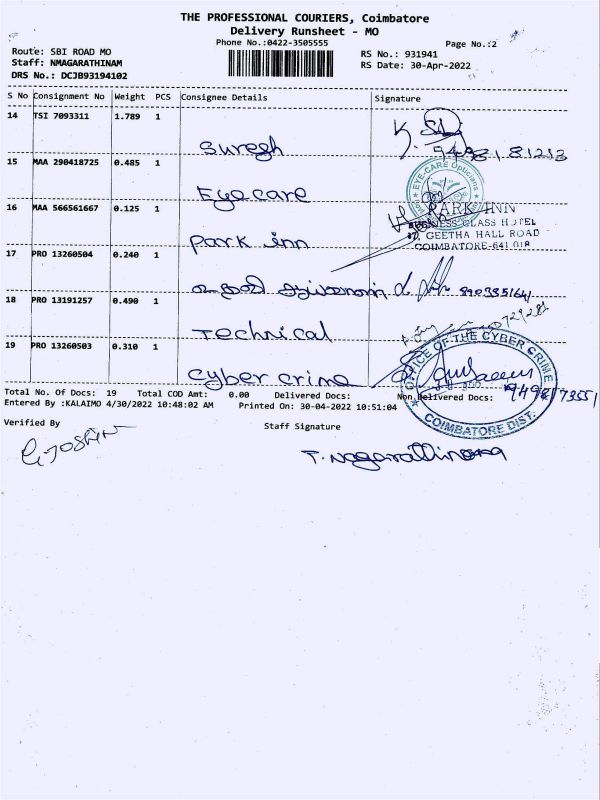 THE PROFESSIONAL COURIERS, Coimbatore
Delivery Runsheet - MO
Phone No.:0422-3505555
Page No.:2
Route: SBI ROAD MO
RS No.: 931941
Staff: NMAGARATHINAM
RS Date: 30-Apr-2022
DRS No.: DCJB93194102
S No Consignment No Weight PCS Consignee Details Signature
14 TSI 7093311 1.789 1
Suresh
15 MAA 290418725 0.485 1
EYE-CARE Opticians
Eye care
16 MAA 566561667 0.125 1
PARK INN
BUSINESS CLASS HOTEL
GEETHA HALL ROAD
COIMBATORE-641 018
Park inn
17 PRO 13260504 0.240 1
18 PRO 13191257 0.490 1
Technical
19 PRO 13260503 0.310 1
OFFICE OF THE CYBER CRIME
COIMBATORE DIST.
Cyber crime
Total No. Of Docs: 19 Total COD Amt: 0.00 Delivered Docs: Non Delivered Docs:
Entered By :KALAIMO 4/30/2022 10:48:02 AM Printed On: 30-04-2022 10:51:04
Verified By
Staff Signature
T. Nagarathinam